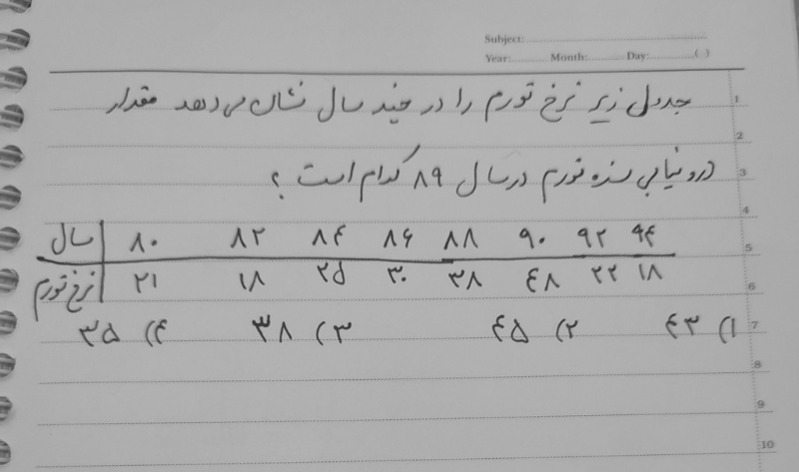 Subject:
Year: Month: Day: ( )
جدول زیر نرخ تورم را در چند سال نشان می دهد مقدار
درونیابی شده تورم در سال ۸۹ کدام است ؟
سال ۸۰ ۸۲ ۸۴ ۸۶ ۸۸ ۹۰ ۹۲ ۹۴
نرخ تورم ۲۱ ۱۸ ۲۵ ۳۰ ۳۸ ۴۸ ۲۲ ۱۸
۱) ۴۳ ۲) ۴۵ ۳) ۳۸ ۴) ۳۵
1
2
3
4
5
6
7
8
9
10